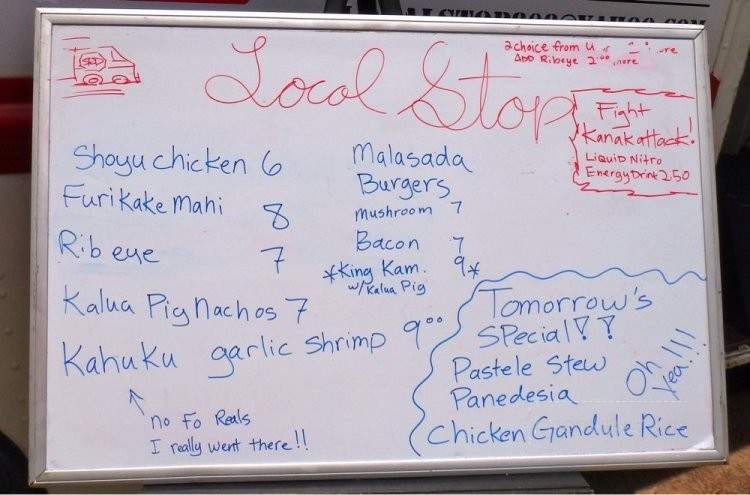 Local Stop
2 choice from
ADD Ribeye 2.00 more
Fight
Kanak attack!
Liquid Nitro
Energy Drink 2.50
Shoyu chicken 6
Furi Kake Mahi 8
Rib eye 7
Kalua Pig Nachos 7
Kahuku garlic shrimp 9.00
no Fo Reals
I really went there!!
Malasada
Burgers
mushroom 7
Bacon 7
*King Kam. 9*
w/Kalua Pig
Tomorrow's
Special!!
Pastele Stew
Panedesia
Oh
Yea!!!
Chicken Gandule Rice